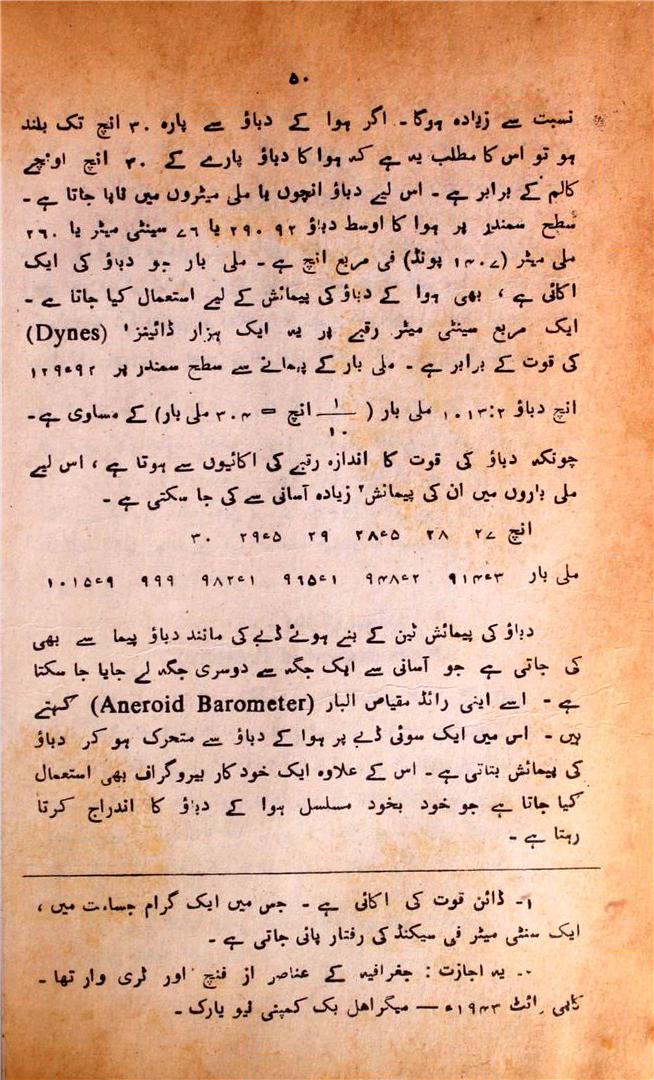 ۵۰
نسبت سے زیادہ ہوگا۔ اگر ہوا کے دباؤ سے پارہ ۳۰ انچ تک بلند
ہو تو اس کا مطلب یہ ہے کہ ہوا کا دباؤ پارے کے ۳۰ انچ اونچے
کالم کے برابر ہے۔ اس لیے دباؤ انچوں یا ملی میٹروں میں ناپا جاتا ہے۔
سطح سمندر پر ہوا کا اوسط دباؤ ۲۹۰۹۲ یا ۷۶ سینٹی میٹر یا ۲۶۰
ملی میٹر (۱۴۰۷ پونڈ) فی مربع انچ ہے۔ ملی بار جو دباؤ کی ایک
اکائی ہے، بھی ہوا کے دباؤ کی پیمائش کے لیے استعمال کیا جاتا ہے۔
ایک مربع سینٹی میٹر رقبے پر یہ ایک ہزار ڈائینز¹ (Dynes)
کی قوت کے برابر ہے۔ ملی بار کے پیمانے سے سطح سمندر پر ۱۲۹ء۹۲
انچ دباؤ ۱۰۱۳:۲ ملی بار (۱/۱۰ انچ = ۳۰۴ ملی بار) کے مساوی ہے۔
چونکہ دباؤ کی قوت کا اندازہ رقبے کی اکائیوں سے ہوتا ہے، اس لیے
ملی باروں میں ان کی پیمائش² زیادہ آسانی سے کی جا سکتی ہے۔
انچ ۲۷ ۲۸ ۲۸ء۵ ۲۹ ۲۹ء۵ ۳۰
ملی بار ۹۱۴ء۳ ۹۴۸ء۲ ۹۶۵ء۱ ۹۸۲ء۱ ۹۹۹ ۱۰۱۵ء۹
دباؤ کی پیمائش ٹین کے بنے ہوئے ڈبے کی مانند دباؤ پیما سے بھی
کی جاتی ہے جو آسانی سے ایک جگہ سے دوسری جگہ لے جایا جا سکتا
ہے۔ اسے اینی رائڈ مقیاص البار (Aneroid Barometer) کہتے
ہیں۔ اس میں ایک سوئی ڈبے پر ہوا کے دباؤ سے متحرک ہو کر دباؤ
کی پیمائش بتاتی ہے۔ اس کے علاوہ ایک خود کار بیروگراف بھی استعمال
کیا جاتا ہے جو خود بخود مسلسل ہوا کے دباؤ کا اندراج کرتا
رہتا ہے۔
۱۔ ڈائن قوت کی اکائی ہے۔ جس میں ایک گرام جسامت میں،
ایک سنٹی میٹر فی سیکنڈ کی رفتار پائی جاتی ہے۔
یہ اجازت : جغرافیہ کے عناصر از فنچ اور ٹری وار تھا۔
کاپی رائٹ ۱۹۴۳ء — میگراهل بک کمپنی نیو یارک۔